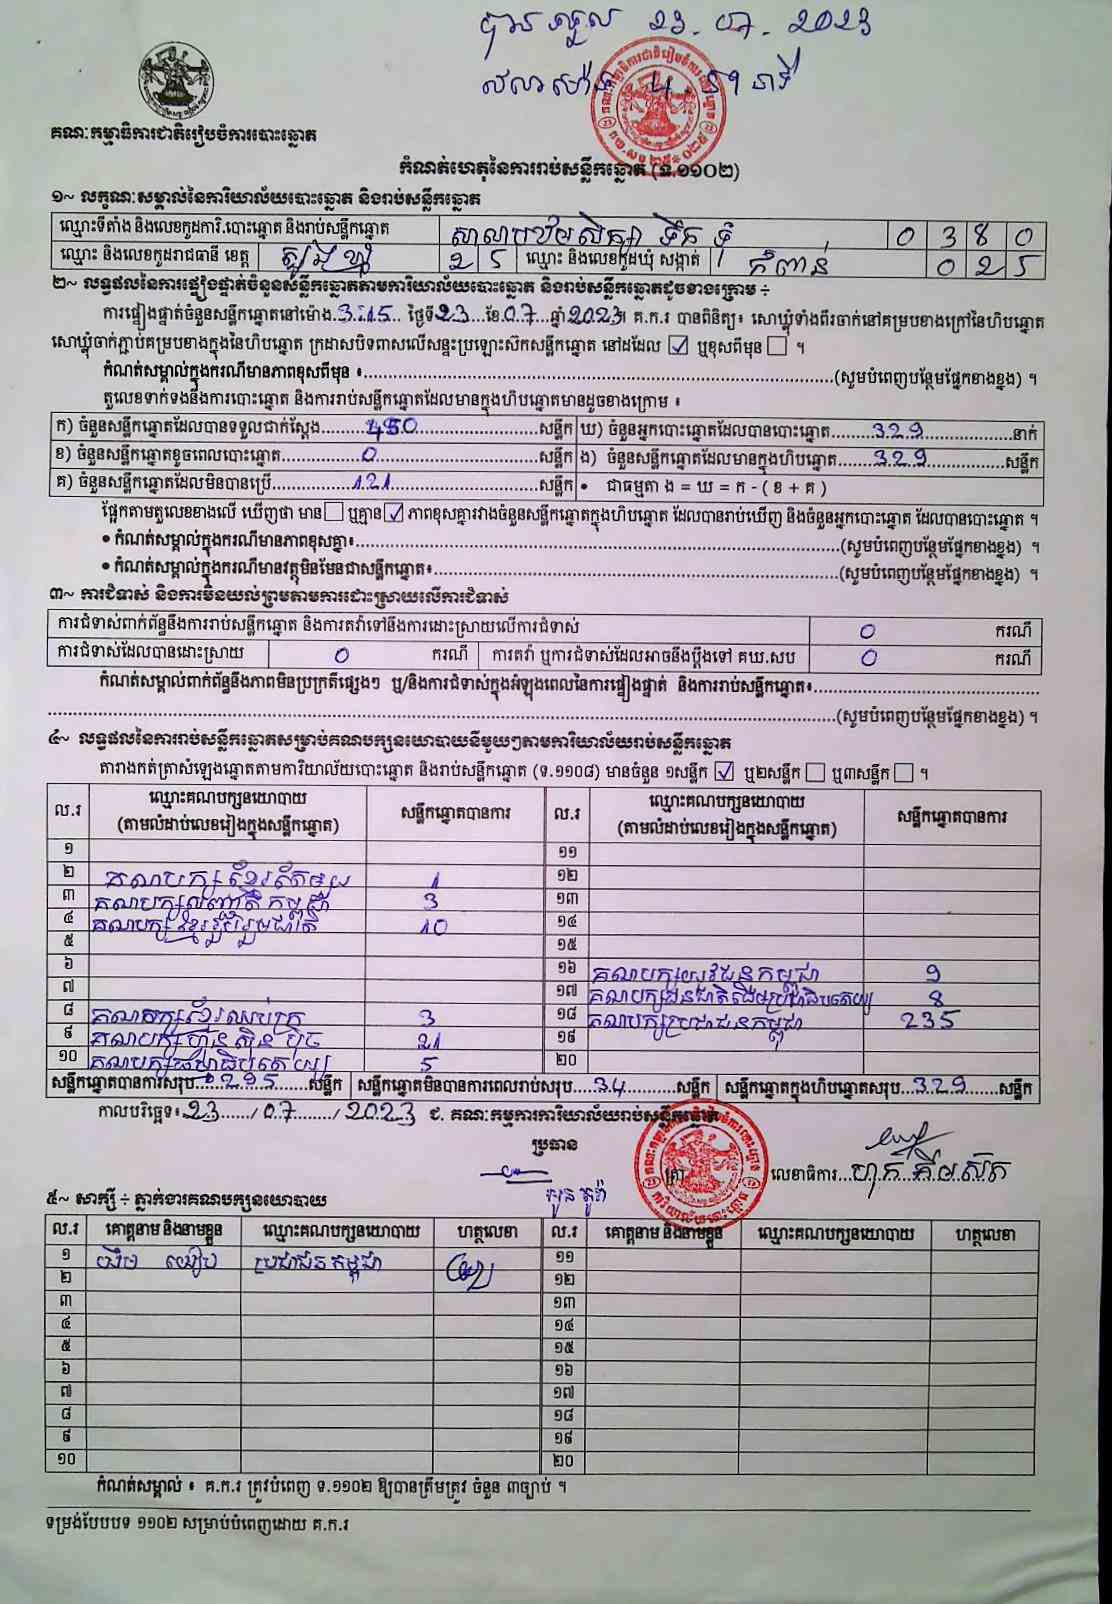 បានទទួល 23.07.2023
គណៈកម្មាធិការជាតិរៀបចំការបោះឆ្នោត
កំណត់ហេតុនៃការរាប់សន្លឹកឆ្នោត (ទ.១១០២)
១~ លក្ខណៈសម្គាល់នៃការិយាល័យបោះឆ្នោត និងរាប់សន្លឹកឆ្នោត
ឈ្មោះទីតាំង និងលេខកូដការិ.បោះឆ្នោត និងរាប់សន្លឹកឆ្នោត សាលាបឋមសិក្សា ទឹក ទុំ 0 3 8 0
ឈ្មោះ និងលេខកូដរាជធានី ខេត្ត ត្បូងឃ្មុំ 2 5 ឈ្មោះ និងលេខកូដឃុំ សង្កាត់ កំពាន់ 0 2 5
២~ លទ្ធផលនៃការផ្ទៀងផ្ទាត់ចំនួនសន្លឹកឆ្នោតតាមការិយាល័យបោះឆ្នោត និងរាប់សន្លឹកឆ្នោតដូចខាងក្រោម ÷
ការផ្ទៀងផ្ទាត់ចំនួនសន្លឹកឆ្នោតនៅម៉ោង 3:15 ថ្ងៃទី 23 ខែ 07 ឆ្នាំ 2023។ គ.ក.រ បានពិនិត្យ៖ សោឃ្លុំទាំងពីរចាក់នៅគម្របខាងក្រៅនៃហិបឆ្នោត
សោឃ្លុំចាក់ភ្ជាប់គម្របខាងក្នុងនៃហិបឆ្នោត ក្រដាសបិទពាសលើសន្ទះប្រឡោះស៊កសន្លឹកឆ្នោត នៅដដែល ☑ ឬខុសពីមុន ☐ ។
កំណត់សម្គាល់ក្នុងករណីមានភាពខុសពីមុន ៖ (សូមបំពេញបន្ថែមផ្នែកខាងខ្នង) ។
តួលេខទាក់ទងនឹងការបោះឆ្នោត និងការរាប់សន្លឹកឆ្នោតដែលមានក្នុងហិបឆ្នោតមានដូចខាងក្រោម ៖
ក) ចំនួនសន្លឹកឆ្នោតដែលបានទទួលជាក់ស្តែង 450 សន្លឹក ឃ) ចំនួនអ្នកបោះឆ្នោតដែលបានបោះឆ្នោត 329 នាក់
ខ) ចំនួនសន្លឹកឆ្នោតខូចពេលបោះឆ្នោត 0 សន្លឹក ង) ចំនួនសន្លឹកឆ្នោតដែលមានក្នុងហិបឆ្នោត 329 សន្លឹក
គ) ចំនួនសន្លឹកឆ្នោតដែលមិនបានប្រើ 121 សន្លឹក • ជាធម្មតា ង = ឃ = ក - ( ខ + គ )
ផ្អែកតាមតួលេខខាងលើ ឃើញថា មាន ☐ ឬគ្មាន ☑ ភាពខុសគ្នារវាងចំនួនសន្លឹកឆ្នោតក្នុងហិបឆ្នោត ដែលបានរាប់ឃើញ និងចំនួនអ្នកបោះឆ្នោត ដែលបានបោះឆ្នោត ។
• កំណត់សម្គាល់ក្នុងករណីមានភាពខុសគ្នា៖ (សូមបំពេញបន្ថែមផ្នែកខាងខ្នង) ។
• កំណត់សម្គាល់ក្នុងករណីមានវត្ថុមិនមែនជាសន្លឹកឆ្នោត៖ (សូមបំពេញបន្ថែមផ្នែកខាងខ្នង) ។
៣~ ការជំទាស់ និងការមិនយល់ព្រមតាមការដោះស្រាយលើការជំទាស់
ការជំទាស់ពាក់ព័ន្ធនឹងការរាប់សន្លឹកឆ្នោត និងការតវ៉ាទៅនឹងការដោះស្រាយលើការជំទាស់ 0 ករណី
ការជំទាស់ដែលបានដោះស្រាយ 0 ករណី ការតវ៉ា ឬការជំទាស់ដែលអាចនឹងប្តឹងទៅ គឃ.សប 0 ករណី
កំណត់សម្គាល់ពាក់ព័ន្ធនឹងភាពមិនប្រក្រតីផ្សេងៗ ឬ/និងការជំទាស់ក្នុងអំឡុងពេលនៃការផ្ទៀងផ្ទាត់ និងការរាប់សន្លឹកឆ្នោត៖
(សូមបំពេញបន្ថែមផ្នែកខាងខ្នង) ។
៤~ លទ្ធផលនៃការរាប់សន្លឹកឆ្នោតសម្រាប់គណបក្សនយោបាយនីមួយៗតាមការិយាល័យរាប់សន្លឹកឆ្នោត
តារាងកត់ត្រាសំឡេងឆ្នោតតាមការិយាល័យបោះឆ្នោត និងរាប់សន្លឹកឆ្នោត (ទ.១១០៨) មានចំនួន ១សន្លឹក ☑ ឬ២សន្លឹក ☐ ឬ៣សន្លឹក ☐ ។
ល.រ ឈ្មោះគណបក្សនយោបាយ (តាមលំដាប់លេខរៀងក្នុងសន្លឹកឆ្នោត) សន្លឹកឆ្នោតបានការ ល.រ ឈ្មោះគណបក្សនយោបាយ (តាមលំដាប់លេខរៀងក្នុងសន្លឹកឆ្នោត) សន្លឹកឆ្នោតបានការ
១ ១១
២ គណបក្សខ្មែរតែមួយ 1 ១២
៣ គណបក្សបញ្ញាតិកម្ពុជា 3 ១៣
៤ គណបក្សខ្មែររួបរួមជាតិ 10 ១៤
៥ ១៥
៦ ១៦ គណបក្សយុវជនកម្ពុជា 9
៧ ១៧ គណបក្សជនជាតិដើមប្រជាធិបតេយ្យ 8
៨ គណបក្សខ្មែរឈប់ក្រ 3 ១៨ គណបក្សប្រជាជនកម្ពុជា 235
៩ គណបក្សហ៊្វុនស៊ិនប៉ិច 21 ១៩
១០ គណបក្សធម្មាធិបតេយ្យ 5 ២០
សន្លឹកឆ្នោតបានការសរុប 295 សន្លឹក សន្លឹកឆ្នោតមិនបានការពេលរាប់សរុប 34 សន្លឹក សន្លឹកឆ្នោតក្នុងហិបឆ្នោតសរុប 329 សន្លឹក
កាលបរិច្ឆេទ៖ 23 / 07 / 2023 ជ. គណៈកម្មការការិយាល័យរាប់សន្លឹកឆ្នោត
ប្រធាន
ត្រា លេខាធិការ
៥~ សាក្សី ÷ ភ្នាក់ងារគណបក្សនយោបាយ
ល.រ គោត្តនាម និងនាមខ្លួន ឈ្មោះគណបក្សនយោបាយ ហត្ថលេខា ល.រ គោត្តនាម និងនាមខ្លួន ឈ្មោះគណបក្សនយោបាយ ហត្ថលេខា
១ ប្រជាជនកម្ពុជា ១១
២ ១២
៣ ១៣
៤ ១៤
៥ ១៥
៦ ១៦
៧ ១៧
៨ ១៨
៩ ១៩
១០ ២០
កំណត់សម្គាល់ ៖ គ.ក.រ ត្រូវបំពេញ ទ.១១០២ ឱ្យបានត្រឹមត្រូវ ចំនួន ៣ច្បាប់ ។
ទម្រង់បែបបទ ១១០២ សម្រាប់បំពេញដោយ គ.ក.រ